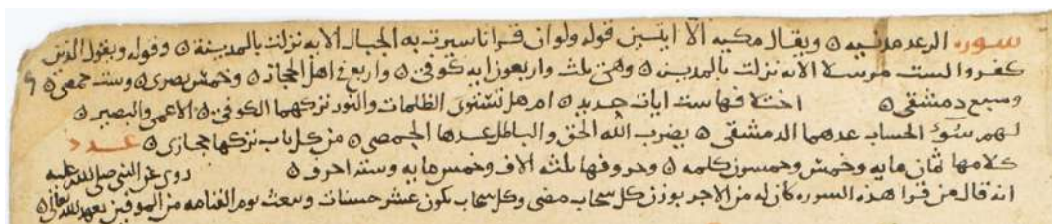 سورة الرعد مدنيه ويقال مكيه الا ايتين قوله ولو ان قرانا سيرت به الجبال الايه نزلت بالمدينة وقوله ويقول الذين
كفروا لست مرسلا الايه نزلت بالمدينه وهي ثلث واربعون ايه كوفي واربع اهل الحجاز وخمس بصري وست حمصي
وسبع دمشقي اختلافها ست ايات جديد ام هل تستوي الظلمات والنور تركهما الكوفي الاعمى والبصير
لهم سوء الحساب عدهما الدمشقي يضرب الله الحق والباطل عدها الحمصي من كل باب تركها حجازي عدد
كلامها ثمان مايه وخمس وخمسون كلمه وحروفها ثلثه الاف وخمس مايه وسته احرف روي عن النبي صلى الله عليه
انه قال من قرا هذه السوره كان له من الاجر بوزن كل سحاب مضى وكل سحاب يكون عشر حسنات وبعث يوم القيامه من الموفين بعهد الله تعالى